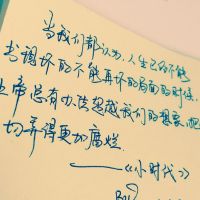 当我们都认为,人生已经不能
书调坏的不能再坏的局面的时候,
上帝总有办法超越我们的想象,把
切弄得更加腐烂
——《小时代》
By